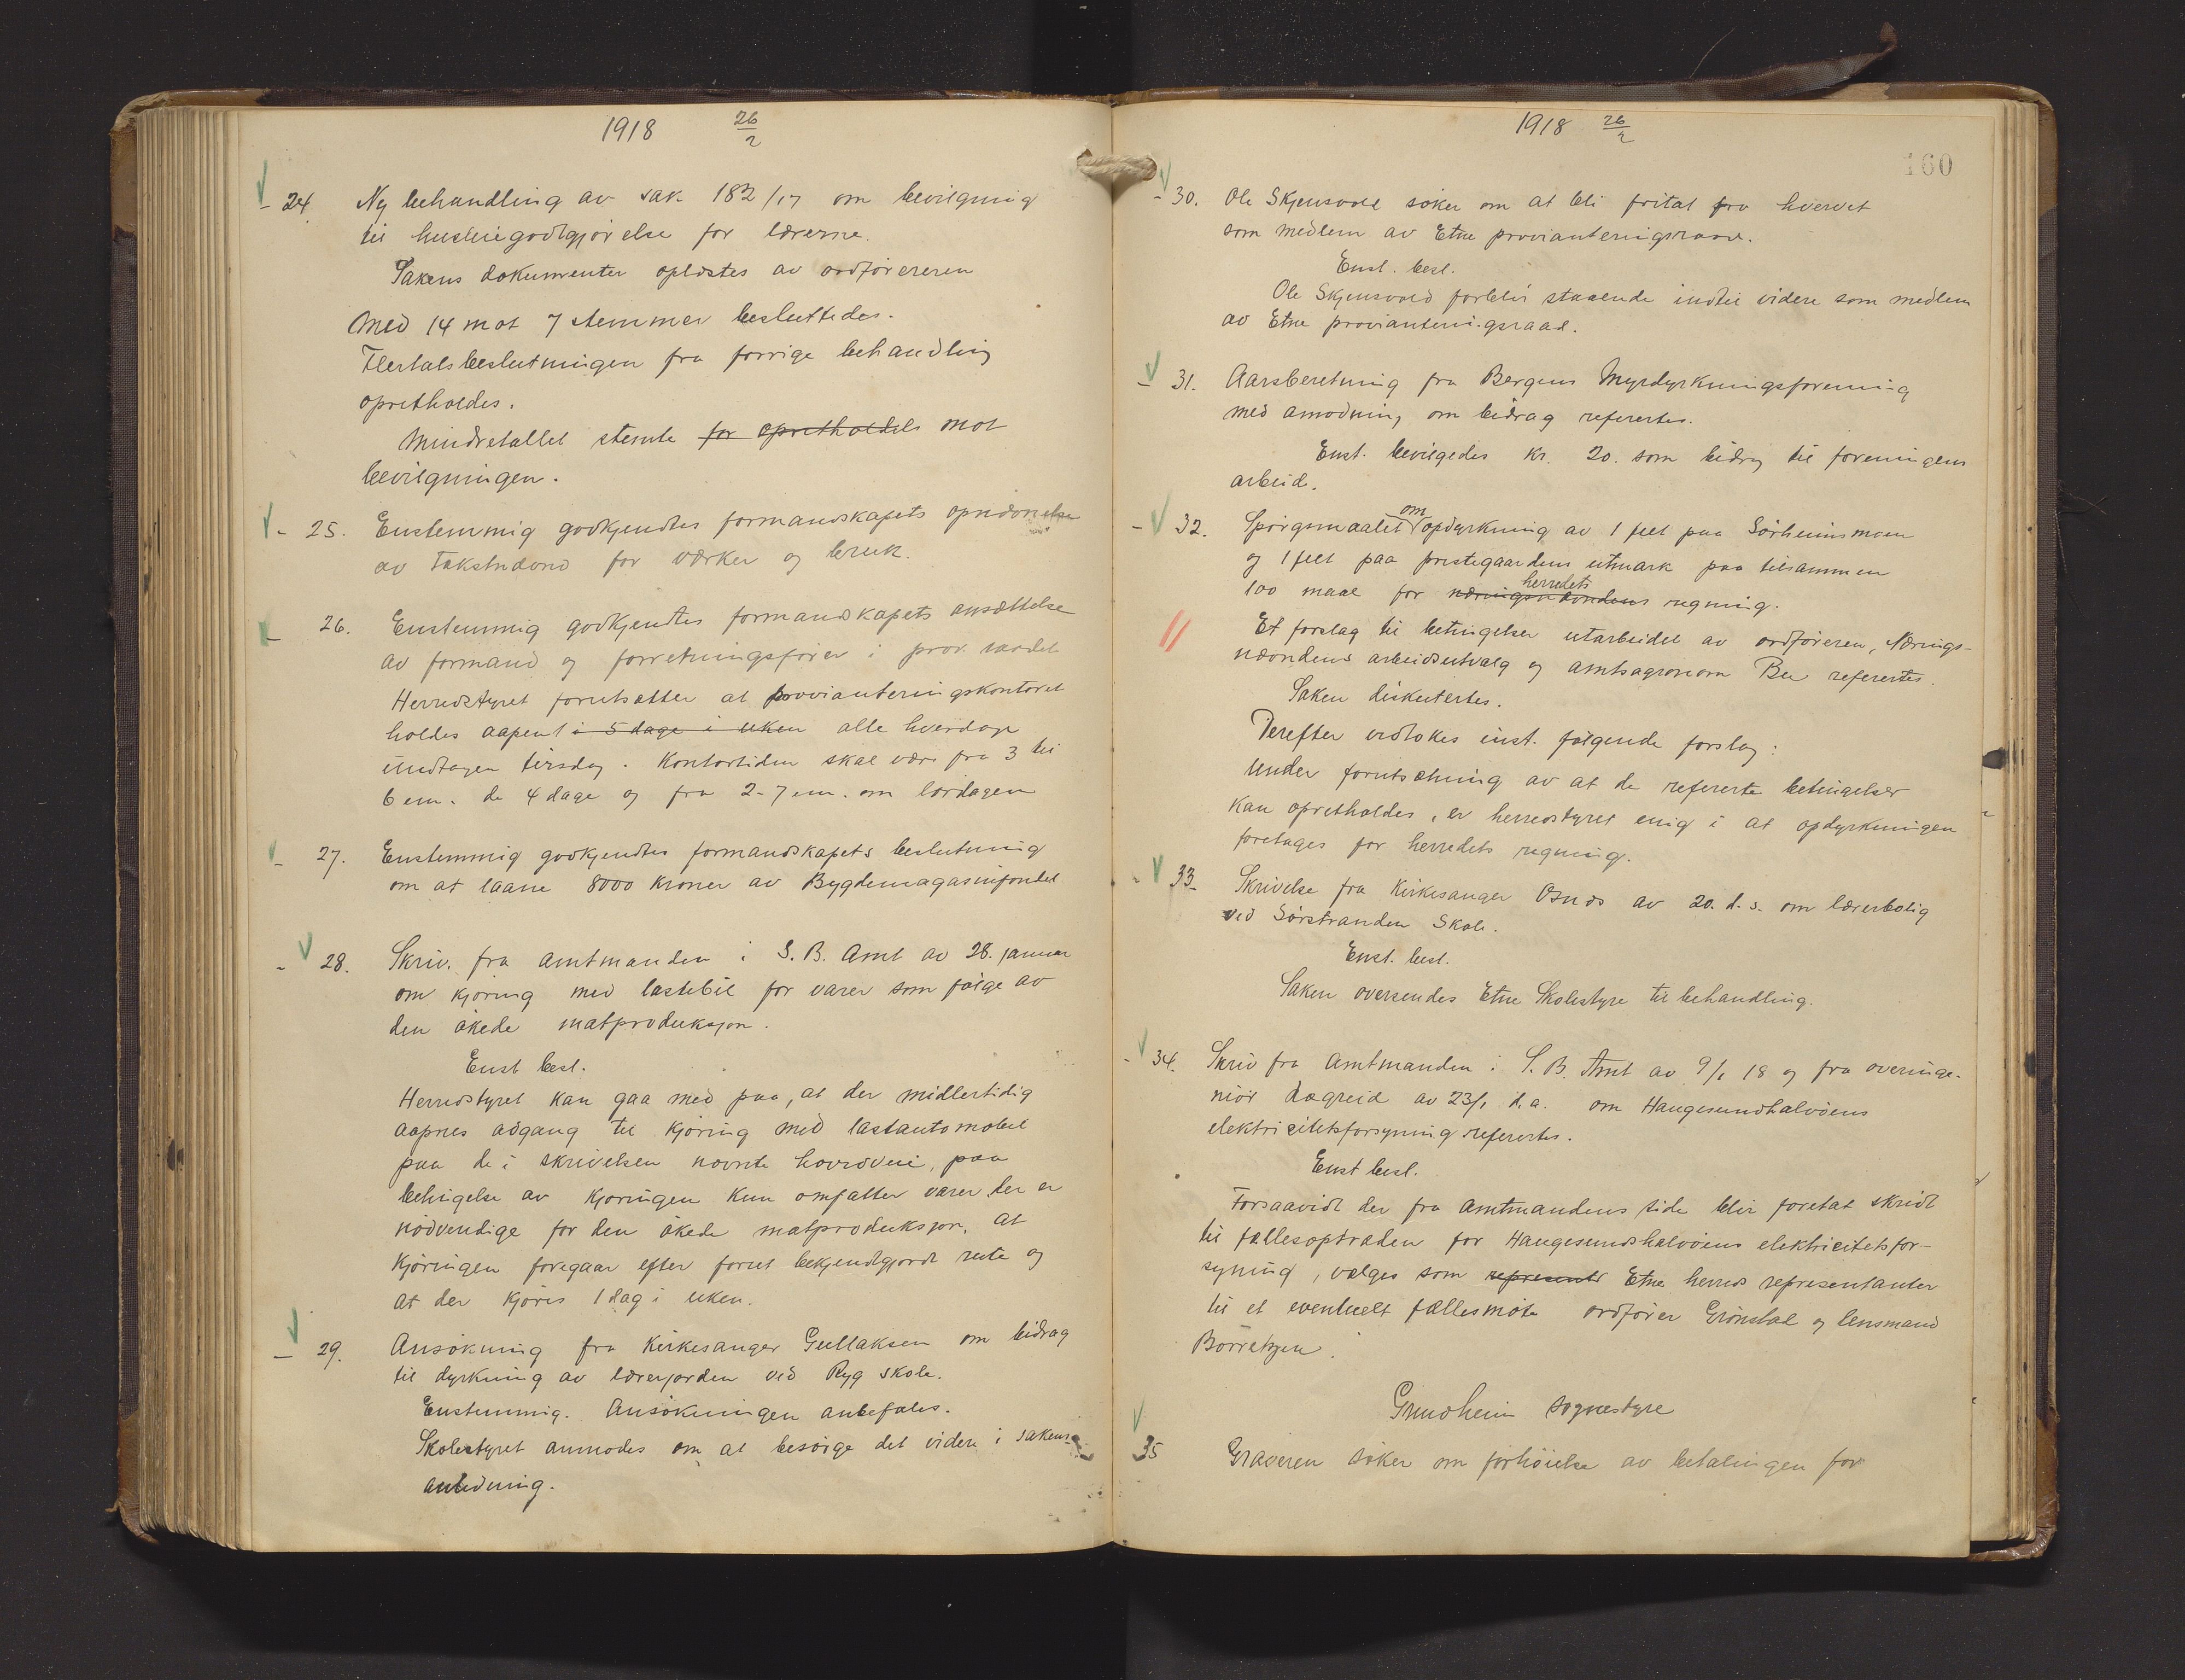 1918 26/2
24. Ny behandling av sak 182/17 om bevilgning
til husleiegodtgjørelse for lærerne.
Sakens dokumenter oplæstes av ordföreren
Med 14 mot 7 stemmer besluttedes.
Flertalsbeslutningen fra forrige behandling
opretholdes.
Mindretallet stemte for opretholdels mot
bevilgningen.
- 25. Enstemmig godkjendtes formandskapets opnævnelse
av Takstnævnd for værker og bruk.
- 26. Enstemmig godkjendtes formandskapets ansættelse
av formand og forretningsförer i prov. raadet
Herredstyret forutsætter at provianteringskontoret
holdes aapent i 5 dage i uken alle hverdage
undtagen tirsdag. Kontortiden skal være fra 3 til
6 em. de 4 dage og fra 2-7 em. om lördagen
- 27. Enstemmig godkjendtes formandskapets beslutning
om at laane 8000 kroner av Bygdemagasinfondet
- 28. Skriv. fra amtmanden i S. B. Amt av 28. januar
om kjöring med lastebil for varer som fölge av
den ökede matproduksjon.
Enst besl.
Herredstyret kan gaa med paa, at der midlertidig
aapnes adgang til kjöring med lastautomobil
paa de i skrivelsen nævnte hovedveie, paa
betingelse av kjöringen kun omfatter varer der er
nödvendige for den ökede matproduksjon, at
Kjöringen foregaar efter forut bekjendtgjordt rute og
at der kjöres 1 dag i uken.
- 29. Ansökning fra Kirkesanger Gullaksen om bidrag
til dyrkning av lærerjorden ved Ryg skole.
Enstemmig. Ansökningen anbefales.
Skolestyret anmodes om at besörge det videre i sakens
anledning.
1918 26/2
160
- 30. Ole Skjensvold söker om at bli fritat fra hvervet
som medlem av Etne provianteringsraad.
Enst. besl.
Ole Skjensvold forblir staaende indtil videre som medlem
av Etne provianteringsraad.
- 31. Aarsberetning fra Bergens Myrdyrkningsforening
med anmodning om bidrag refertes.
Enst. bevilgedes kr. 20. som bidrag til foreningens
arbeide.
- 32. Spörgsmaalet om opdyrkning av 1 felt paa Sörheimsmoen
og 1 felt paa prestegaardens utmark paa tilsammen
100 maal for næringsnævndens herredets regning.
Et forslag til betingelser utarbeidet av ordföreren, Nærings-
nævndens arbeidsutvalg og amtsagronom Bu refertes.
Saken diskutertes.
Derefter vedtokes enst. fölgende forslag:
Under forutsætning av at de refererte betingelser
kan opretholdes, er herredstyret enig i at opdyrkningen
foretages for herredets regning.
- 33. Skrivelse fra Kirkesanger Osnes av 20. d.s. om lærerbolig
ved Sörstranden Skole.
Enst. besl.
Saken oversendes Etne Skolestyre til behandling.
- 34. Skriv fra Amtmanden i S. B. Amt av 9/1 18 og fra overinge-
niör Dægreid av 23/1 d.a. om Haugesundhalvöens
elektricitetsforsyning refertes.
Enst besl.
Forsaavidt der fra Amtmandens side blir foretat skridt
til fællesoptræden for Haugesundshalvöens elektricitetsfor-
syning, vælges som represent Etne herreds representanter
til et eventuelt fællesmöte ordförer Grönstad og lensmand
Börretzen.
Grindheim Sognestyre
35 Graveren söker om forhöielse av betalingen for